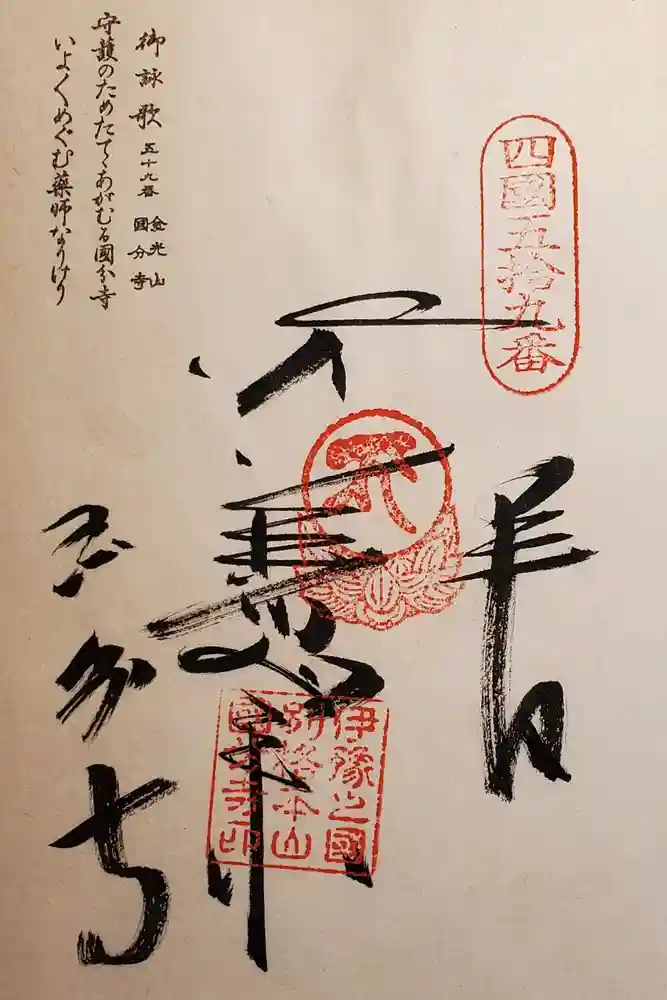 四國五拾九番
奉
伊豫之國
別格本山
國分寺印
国分寺
御詠歌 五十九番 金光山 國分寺
守護のためたてゝあがむる國分寺
いよ〱めぐむ藥師なりけり